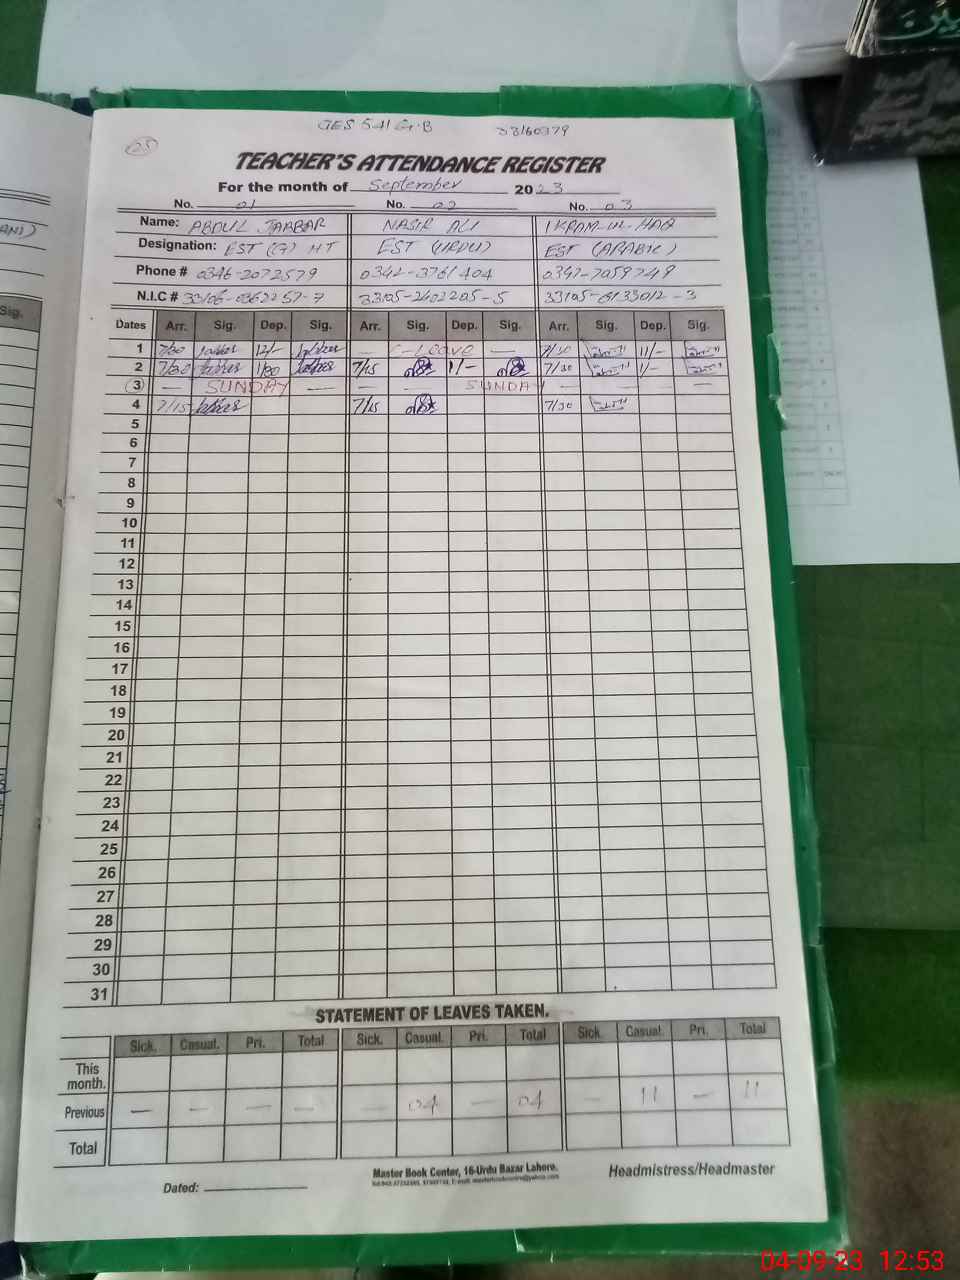 GES 541 G.B 33160379
25
TEACHER'S ATTENDANCE REGISTER
For the month of September 2023
No. 01 No. 02 No. 03
Name: ABDUL JABBAR NASIR ALI IKRAM-UL-HAQ
Designation: EST (G) HT EST (URDU) EST (ARABIC)
Phone # 0346-2072579 0342-3761404 0347-7059749
N.I.C # 33106-0362257-7 33105-2402205-5 33105-6133012-3
Dates Arr. Sig. Dep. Sig. Arr. Sig. Dep. Sig. Arr. Sig. Dep. Sig.
1 7/30 12/- — C-Leave — 7/30 11/-
2 7/30 1/30 7/15 1/- 7/30 1/-
3 — SUNDAY — — SUNDAY — — — —
4 7/15 7/15 7/30
5
6
7
8
9
10
11
12
13
14
15
16
17
18
19
20
21
22
23
24
25
26
27
28
29
30
31
STATEMENT OF LEAVES TAKEN.
Sick. Casual. Pri. Total Sick. Casual. Pri. Total Sick. Casual. Pri. Total
This month.
Previous — — — — — 04 — 04 — 11 — 11
Total
Master Book Center, 16-Urdu Bazar Lahore.
Dated: Headmistress/Headmaster
04-09-23 12:53